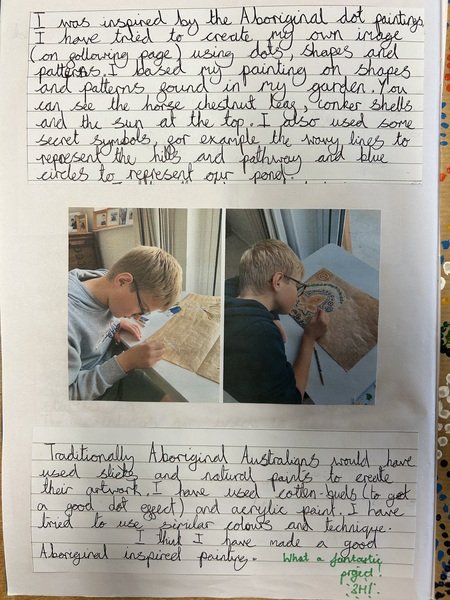 I was inspired by the Aboriginal dot paintings.
I have tried to create my own image
(on following page) using dots, shapes and
patterns. I based my painting on shapes
and patterns found in my garden. You
can see the horse chestnut leaf, conker shells
and the sun at the top. I also used some
secret symbols, for example the wavy lines to
represent the hills and pathway and blue
circles to represent our pond.
Traditionally Aboriginal Australians would have
used sticks and natural paints to create
their artwork. I have used cotten-buds (to get
a good dot effect) and acrylic paint. I have
tried to use similar colours and technique.
I think I have made a good
Aboriginal inspired painting.
What a fantastic
project!